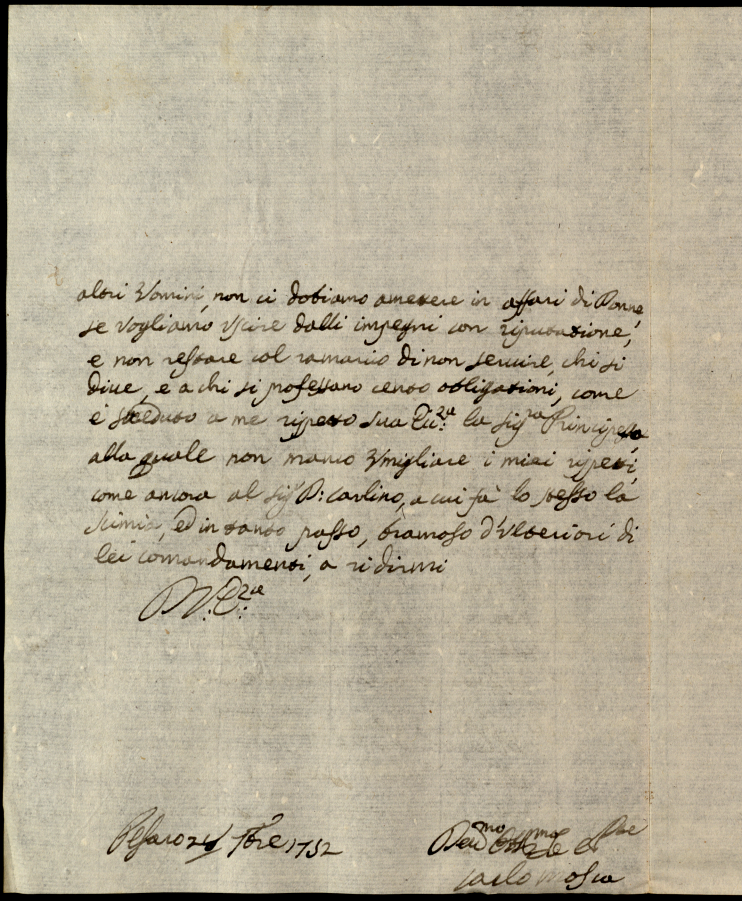 altri Vomini, non ci dobiamo ametere in affari di Donne,
se vogliamo Vscire dalli impegni con riputatione,
e non restare col ramarico di non seruire, chi si
diue, e a chi si professano cento obligationi, come
è suceduto a me rispetto Sua Ecc:za la Sig:ra Principessa
alla quale non manco Vmigliare i miei rispeti,
come ancora al Sig:r D: Carlino, a cui fà lo stesso la
scimia, ed in tanto passo, bramoso d'Vlteriori di
lei comandamenti, a ridirmi
D V: E:za
Pesaro 21 7bre 1752
Deu:mo
Carlo Mosca